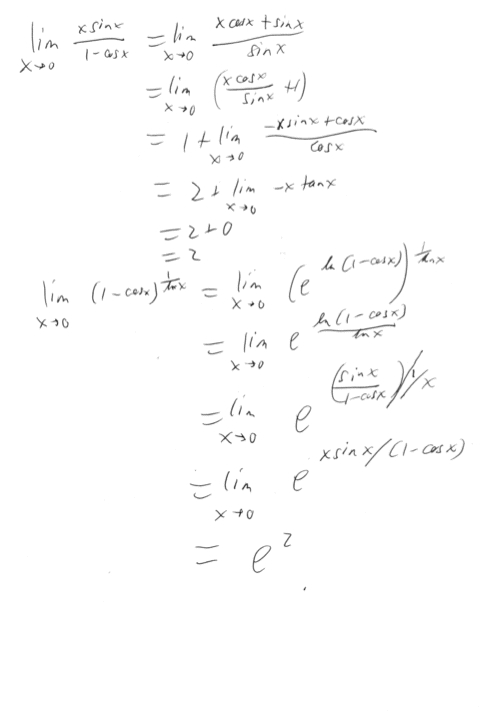 lim x→0 x sinx / (1-cosx) = lim x→0 (x cosx + sinx) / sinx
= lim x→0 (x cosx / sinx + 1)
= 1 + lim x→0 (-x sinx + cosx) / cosx
= 2 + lim x→0 -x tanx
= 2 + 0
= 2
lim x→0 (1-cosx)^(1/lnx) = lim x→0 (e^(ln(1-cosx)))^(1/lnx)
= lim x→0 e^(ln(1-cosx)/lnx)
= lim x→0 e^((sinx/(1-cosx))/(1/x))
= lim x→0 e^(x sinx/(1-cosx))
= e^2